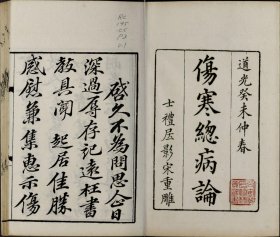 道光癸未仲春
傷寒總病論
士禮居影宋重雕
啟久不為問思企日
深過辱存記遠枉書
教具聞 起居佳勝
感慰兼集惠示傷